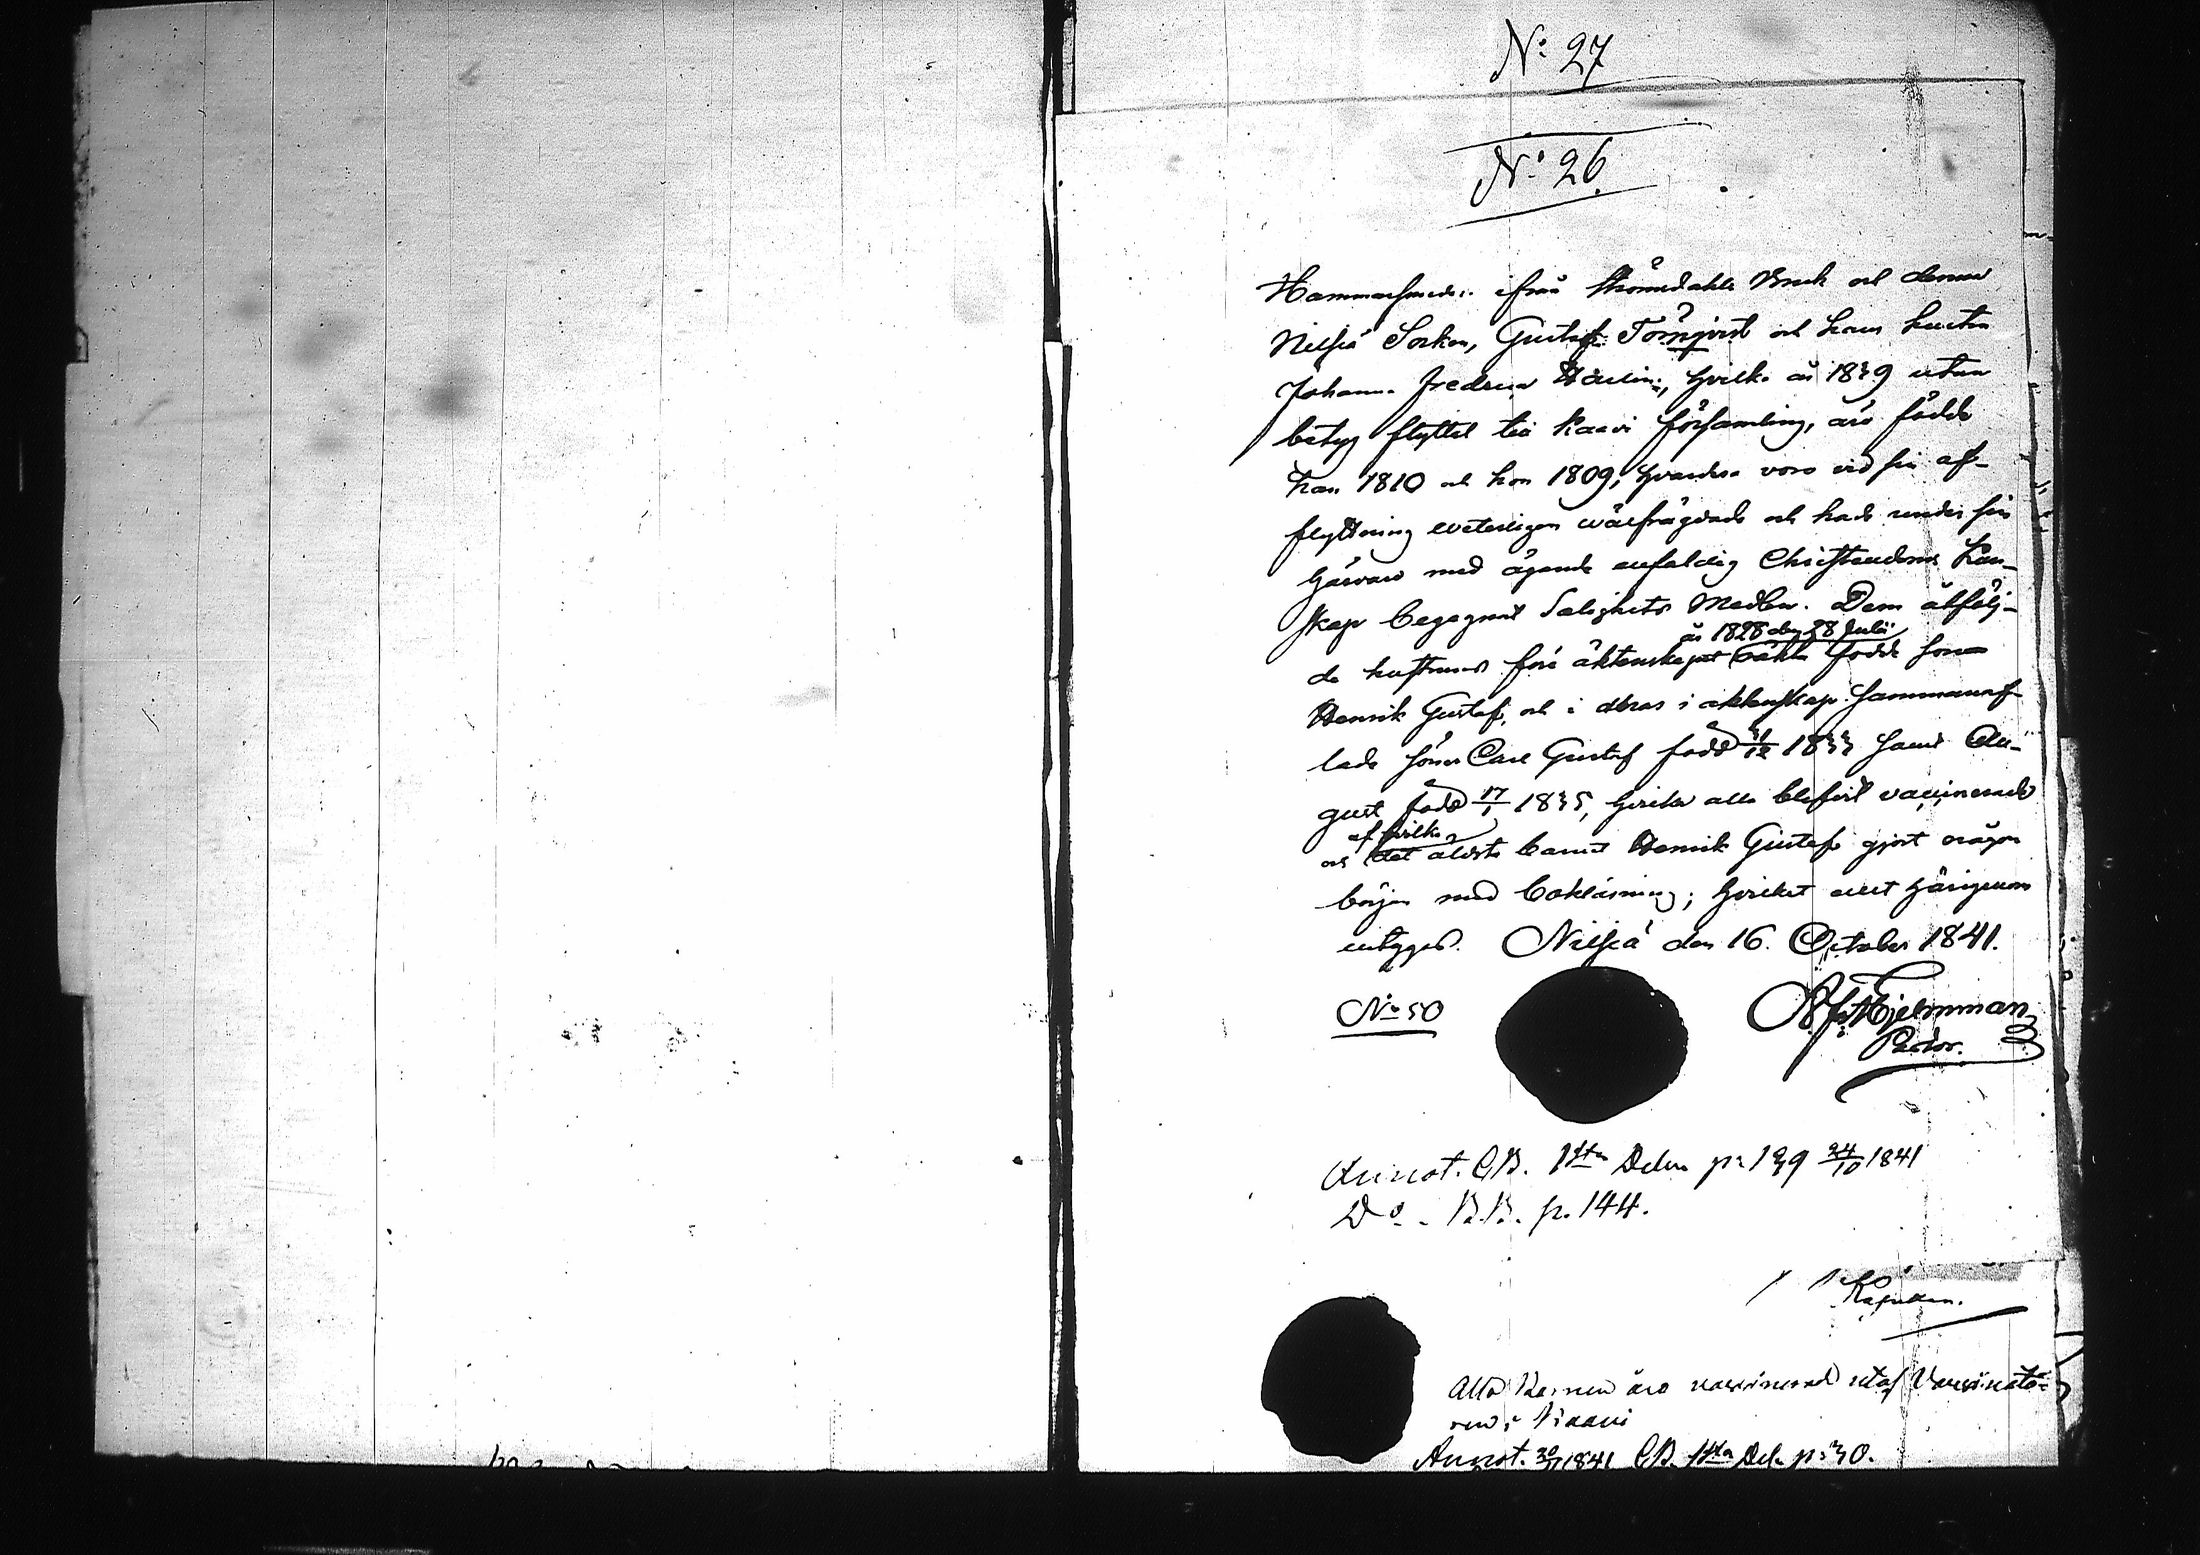 No 27
No 26
Hammarsmeden ifrån Strömsdahls Bruk och denna
Nilsiä Socken, Gustaf Törnqvist och hans hustru
Johanna Fredrica, hvilka år 1839 utan
betyg flyttat till Kaavi församling, äro födde
han 1810 och hon 1809; hvardera voro vid sin af-
flyttning veterligen välfrägdade och hade under sin
härvaro med ägande enfaldig Christendoms kun-
skap begagnat Salighets Medlen. Dem åtfölj-
de hustruns före äktenskapet år 1828 den 28 Julii födde son
Henrik Gustaf, och i deras i äktenskap sammanaf-
lade söner Carl Gustaf född 31/12 1833 samt Au-
gust född 17/1 1835, hvilka alla blifvit vaccinerade
och af hvilka det äldsta barnet Henrik Gustaf gjort någon
början med bokläsning; hvilket allt härigenom
intygas. Nilsiä den 16. October 1841.
No 50
Hjelmman
Pastor.
Annot. C.B. 1sta Delen p: 139 24/10 1841
Do - B.B. p. 144.
Kapellan.
Alla Barnen äro vaccinerade utaf Vaccinatö-
ren i Kaavi
Annot. 1841 C.B. 1sta Del. p: 30.